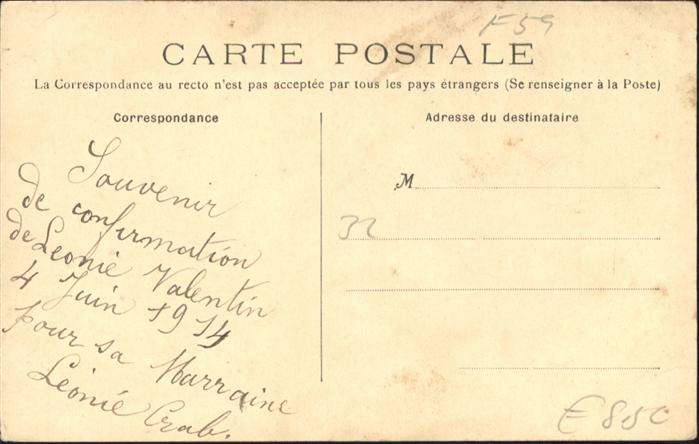 F59
CARTE POSTALE
La Correspondance au recto n'est pas acceptée par tous les pays étrangers (Se renseigner à la Poste)
Correspondance
Adresse du destinataire
Souvenir
de confirmation
de Léonie Valentin
4 Juin 1914
pour sa Marraine
Léonie Crab.
M
32